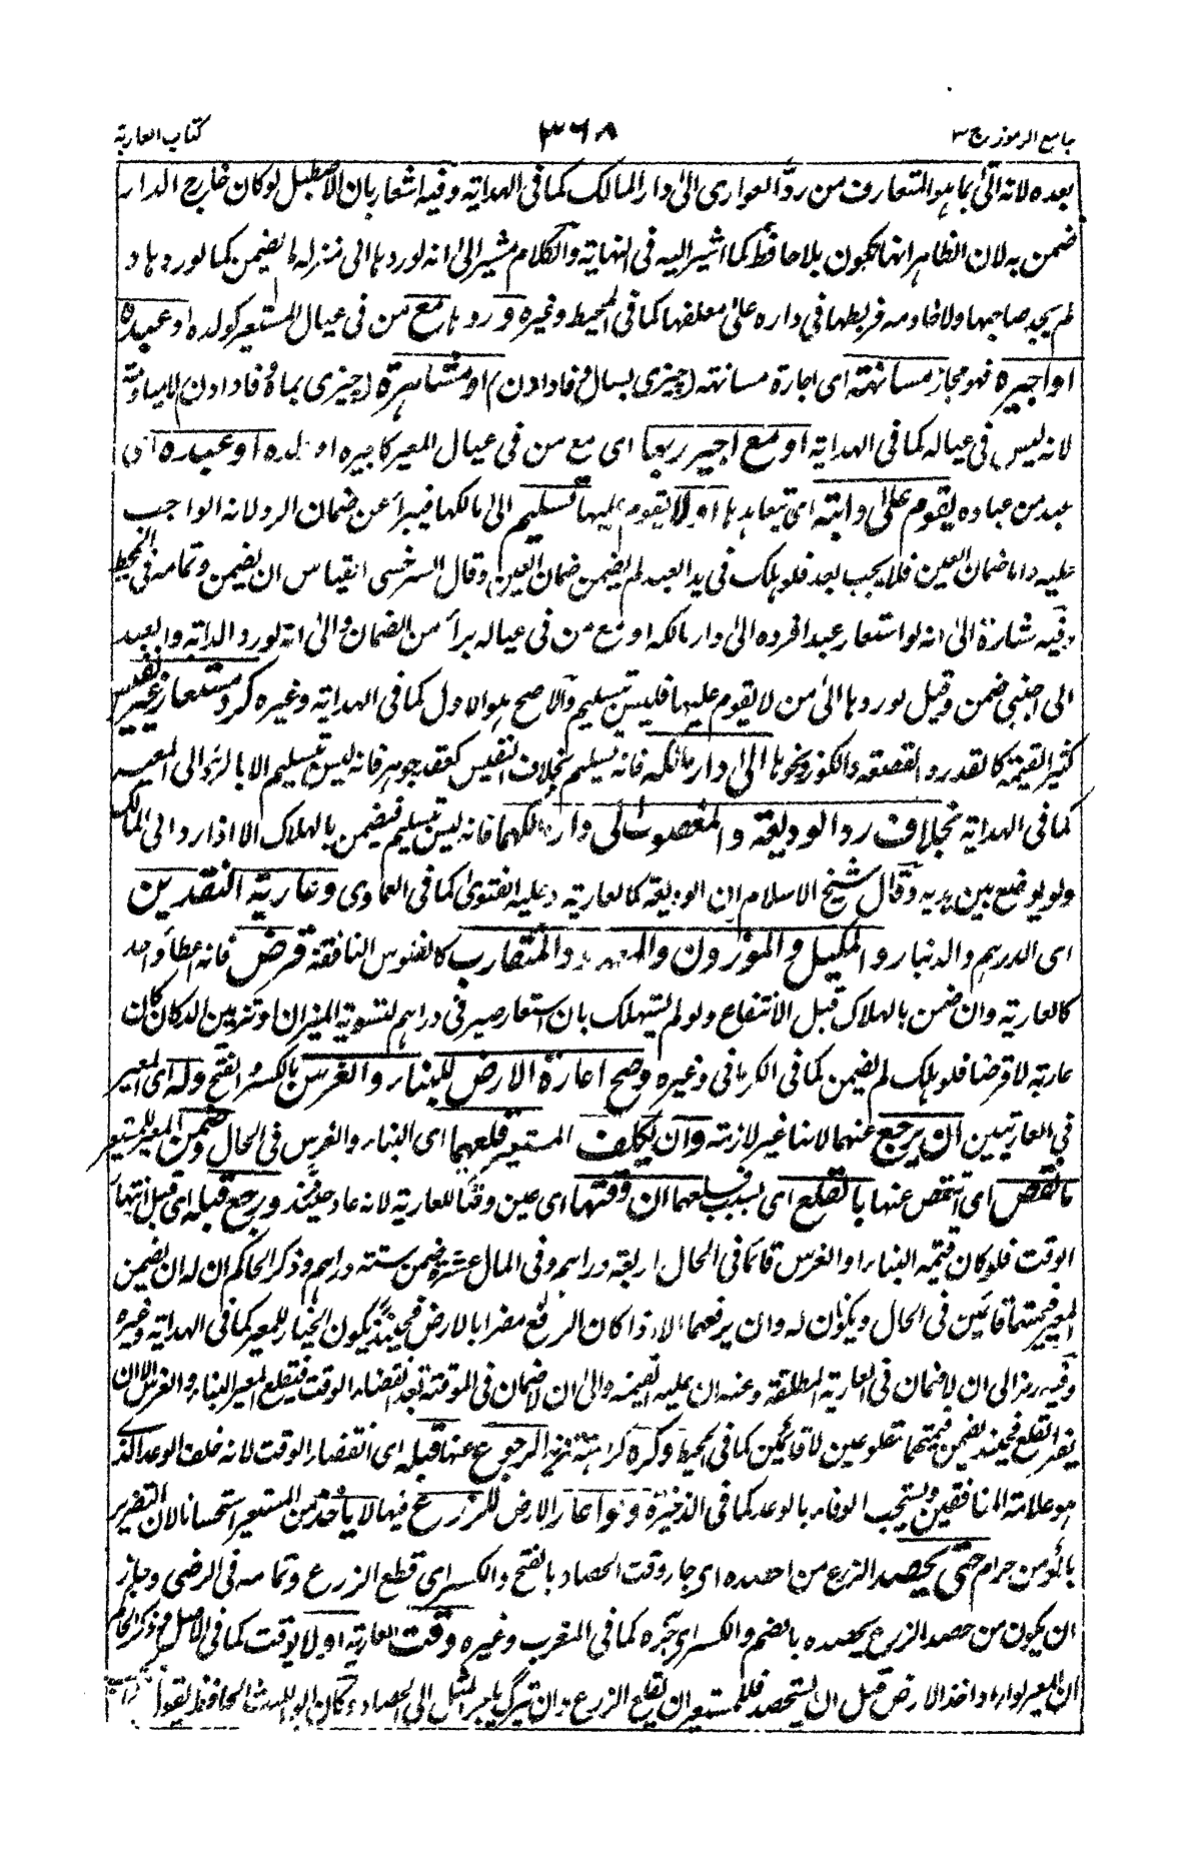 جامع الرموز ج ٣
٣٦٨
كتاب العارية
بعده لانه اتى بما هو المتعارف من ردّ العوارى الى دار المالك كما فى الهداية وفيه اشعار بان الاصطبل لو كان خارج الدار
ضمن به لان الظاهر انها تكون بلا حافظ كما اشير اليه فى النهاية والكلام مشير الى انه لو ردها الى منزله لا يضمن كما لو ردها و
لم يجد صاحبها ولا خادمه فربطها فى داره على معلفها كما فى المحيط وغيره و ردها مع من فى عيال المستعير كولده او عبده
او اجيره فهو مجاز مسانهة اى اجارة مسانهة (چيزى بسال فادادن) او مشاهرة (چيزى بماه فادادن) لا مياومة
لانه ليس فى عياله كما فى الهداية او مع اجير ربها اى مع من فى عيال المعير كاجيره او ولده او عبده اى
عبد من عباده يقوم على دابته اى يتعاهدها او لا يقوم عليها تسليم الى مالكها فيبرأ عن ضمان الرد لانه الواجب
عليه واما ضمان العين فلا يجب بعد فلو هلك فى يد العبد لم يضمن ضمان العين وقال السرخسى القياس ان يضمن وتمامه فى المحيط
وفيه اشارة الى انه لو استعار عبدا فرده الى دار مالكه او مع من فى عياله برأ من الضمان والى انه لو رد الدابة والعبد
الى اجنبى ضمن وقيل لو ردها الى من لا يقوم عليها فليس بتسليم والاصح هو الاول كما فى الهداية وغيره كرد مستعار غير نفيس
كثير القيمة كالقدر والقصعة والكوز ونحوها الى دار مالكه فانه تسليم بخلاف النفيس كعقد جوهر فانه ليس بتسليم الا بالرد الى المعير
كما فى الهداية بخلاف رد الوديعة والمغصوب الى دار مالكهما فانه ليس بتسليم فيضمن بالهلاك الا اذا رد الى المالك
ولو بوضع بين يديه وقال شيخ الاسلام ان الوديعة كالعارية وعليه الفتوى كما فى العمادى وعارية النقدين
اى الدرهم والدينار والمكيل والموزون والمعدود المتقارب كالفلوس النافقة قرض فانه اعطاء واحد
كالعارية وان ضمن بالهلاك قبل الانتفاع ولو لم يستهلك بان استعار صيرفى دراهم لتسوية الميزان او تزيين الدكان كان
عارية لا قرضا فلو هلك لم يضمن كما فى الكرمانى وغيره وصح اعارة الارض للبناء والغرس بالكسر والفتح وله اى المعير
فى العاريتين ان يرجع عنهما لانها غير لازمة وان يكلف المستعير قلعهما اى البناء والغرس فى الحال وضمن المعير للمستعير
ما نقص اى انتقص عنها بالقلع اى بسبب قلعهما ان وقتها اى عين وقتا للعارية لانه عاد حينئذ و رجع قبله اى قبل انتهاء
الوقت فلو كان قيمة البناء او الغرس قائما فى الحال اربعة دراهم وفى المال عشرة ضمن ستة دراهم وذكر الحاكم ان له ان يضمن
المعير قيمتها قائمين فى الحال ويكون له وان يرفعهما الا اذا كان الرفع مضرا بالارض فحينئذ يكون الخيار للمعير كما فى الهداية وغيره
وفيه رمز الى ان لا ضمان فى العارية المطلقة وعنه ان عليه القيمة والى ان لا ضمان فى الموقتة بعد انقضاء الوقت فيقلع المعير البناء والغرس الا ان
يضر القلع فحينئذ يضمن قيمتها مقلوعين لا قائمين كما فى المحيط وكره كراهة تنزيه الرجوع عنها قبله اى انقضاء الوقت لانه خلف الوعد الذى
هو علامة المنافقين ويستحب الوفاء بالوعد كما فى الذخيرة ولو اعار الارض للزرع فيها لا يأخذ من المستعير استحسانا لان التغرير
بالمؤمن حرام حتى يحصد الزرع من احصده اى جاء وقت الحصاد بالفتح والكسر اى قطع الزرع وتمامه فى الرضى وجاز
ان يكون من حصد الزرع يحصده بالضم والكسر اى جزه كما فى المغرب وغيره وقت العارية او لا يوقت كما فى الاصل وذكر الحاكم
ان المعير لو اراد اخذ الارض قبل ان يستحصد فللمستعير ان يقلع الزرع وان يترك باجر المثل الى الحصاد وكان ابو الحافظ يقول